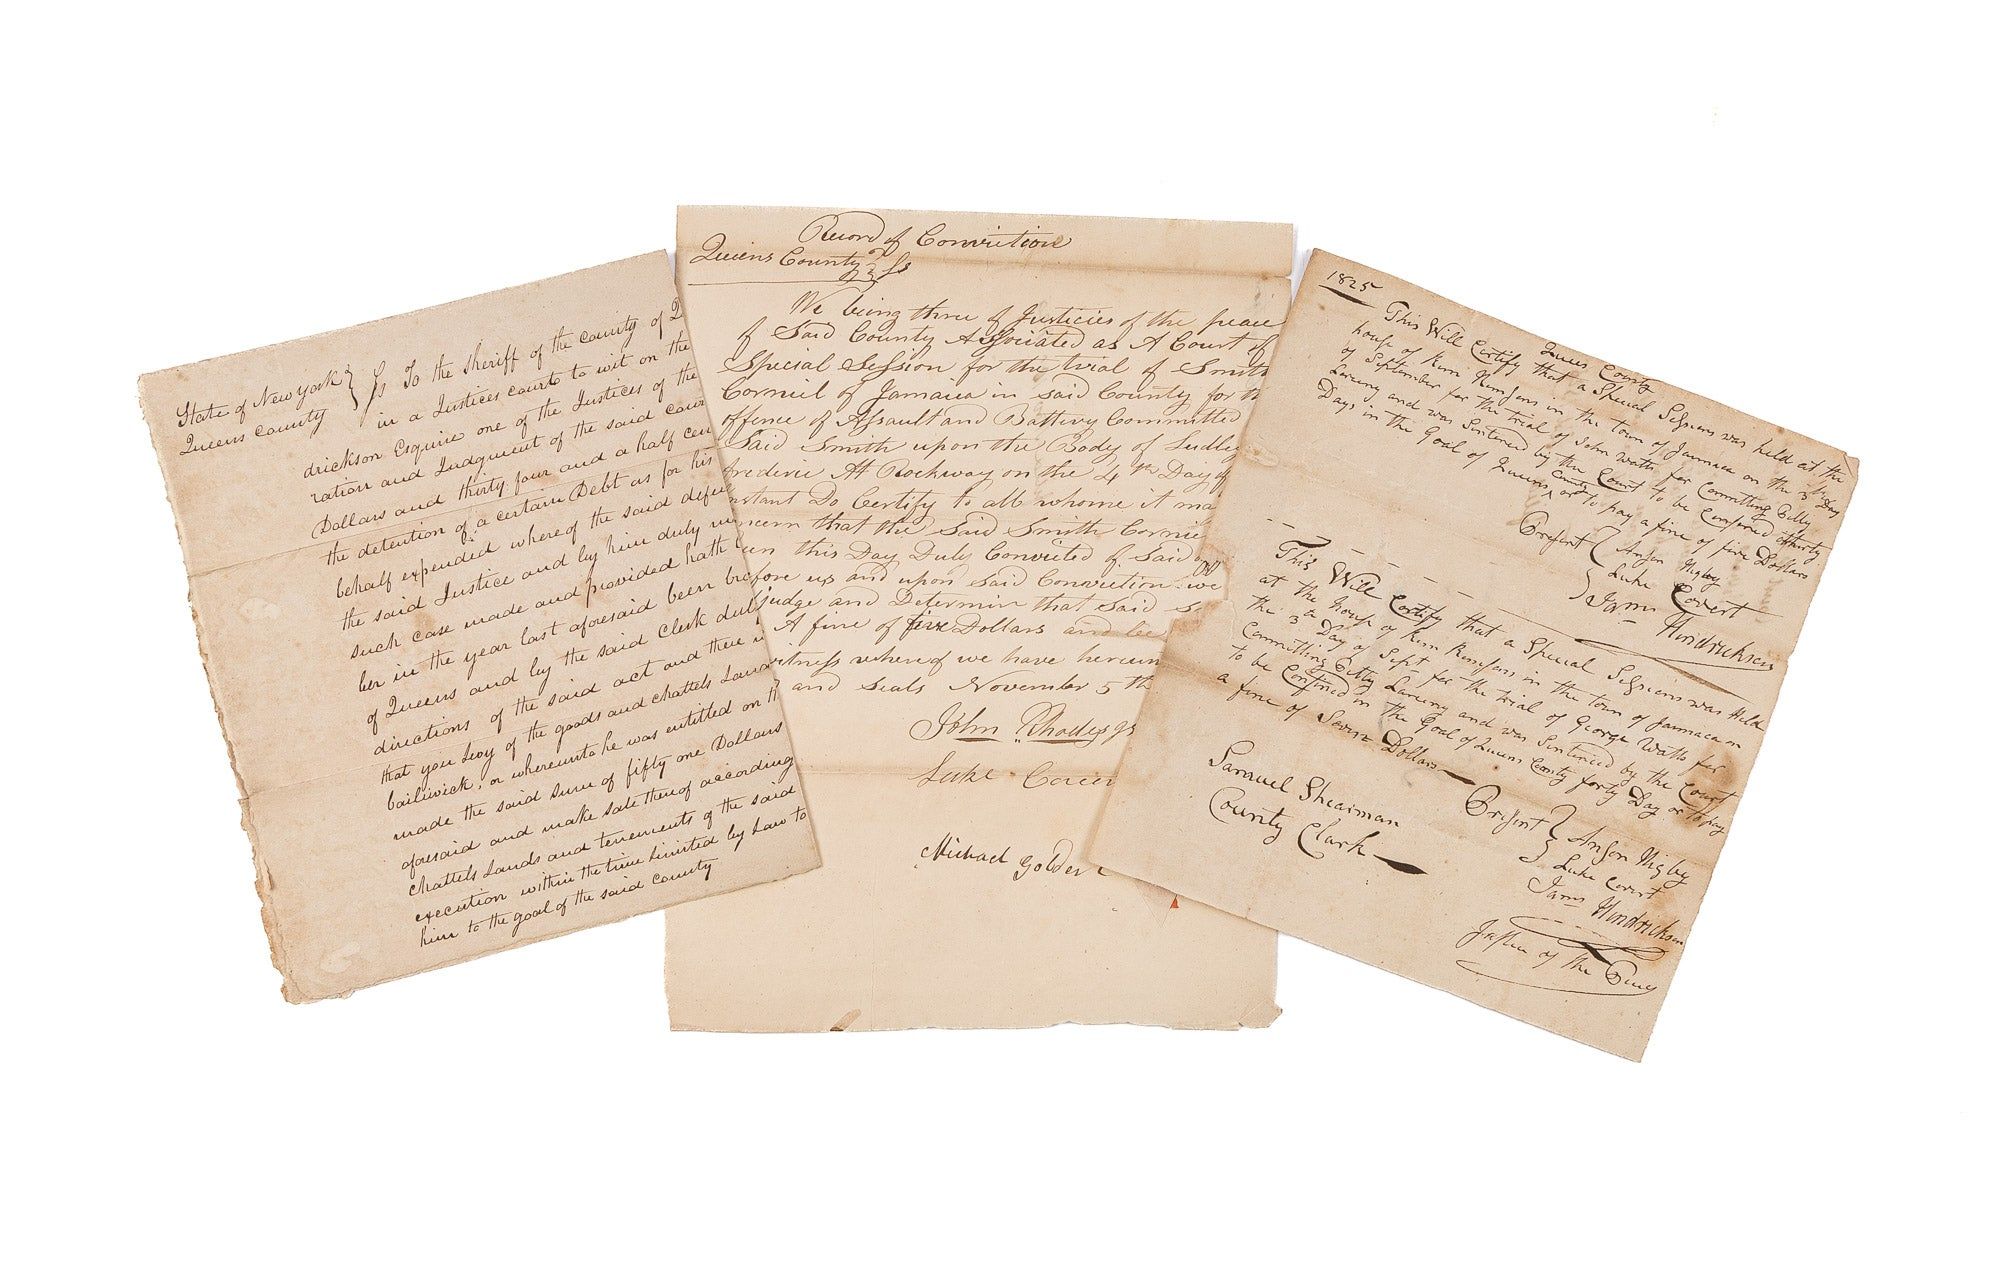 State of New York } ss To the Sheriff of the county of Q
Queens County
in a Justices court to wit on the
drickson Esquire one of the Justices of the
ration and Judgment of the said cour
Dollars and thirty four and a half cen
the detention of a certain Debt as for his
behalf expended where of the said defe
the said Justice and by him duly
such case made and provided hath
ber in the year last aforesaid been
of Queens and by the said Clerk dul
directions of the said act and there
that you Levy of the goods and chattels Land
bailiwick, or whereunto he was entitled on th
made the said sum of fifty one Dollars
aforesaid and make sale thereof according
chattels Lands and tenements of the said
execution within the time limited by Law to
him to the goal of the said county
Record of Conviction
Queens County ss
We being three of Justicies of the peace
of Said County Associated as A Court of
Special Session for the trial of Smith
Corniel of Jamaica in said County for th
offence of Assault and Battivy Committed
Said Smith upon the Body of Sudley
frederic At Rockway on the 4th Day of
nstant Do Certify to all whome it ma
ncern that the Said Smith Cornie
een this Day Duly Convicted of Said off
fore us and upon Said Conviction we
judge and Determin that Said S
A fine of five Dollars and be
witness whereof we have hereun
and Seals November 5th
John Rhodes
Luke Cover
Michael Golder
1825
Queens County
This Will Certify that a Special Sessions was held at the
house of Rem Remsens in the town of Jamaica on the 3 Day
of September for the trial of John Watts for Committing Pitty
Larceny and was Sintenced by the Court to be Confined thirty
Days in the Goal of Queens County or to pay a fine of five Dollars
Present { Anson Higby
Luke Covert
James Hendrickson
This Will Certify that a Special Sessions was Held
at the House of Rem Remsens in the town of Jamaica on
the 3 Day of Sept for the trial of George Watts for
Committing Pitty Larceny and was Sintenced by the Court
to be Confined in the Goal of Queens County forty Day or to pay
a fine of Seven Dollars
Present } Anson Higby
Luke Covert
James Hendrickson
Samuel Shearman
County Clark
of the Peace